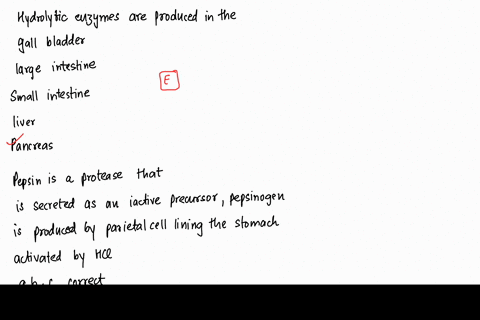 Hydrolytic enzymes are produced in the
gall bladder
large intestine
E
Small intestine
liver
Pancreas
Pepsin is a protease that
is secreted as an iactive precursor, pepsinogen
is produced by parietal cell lining the stomach
activated by HCl
a, b, c correct